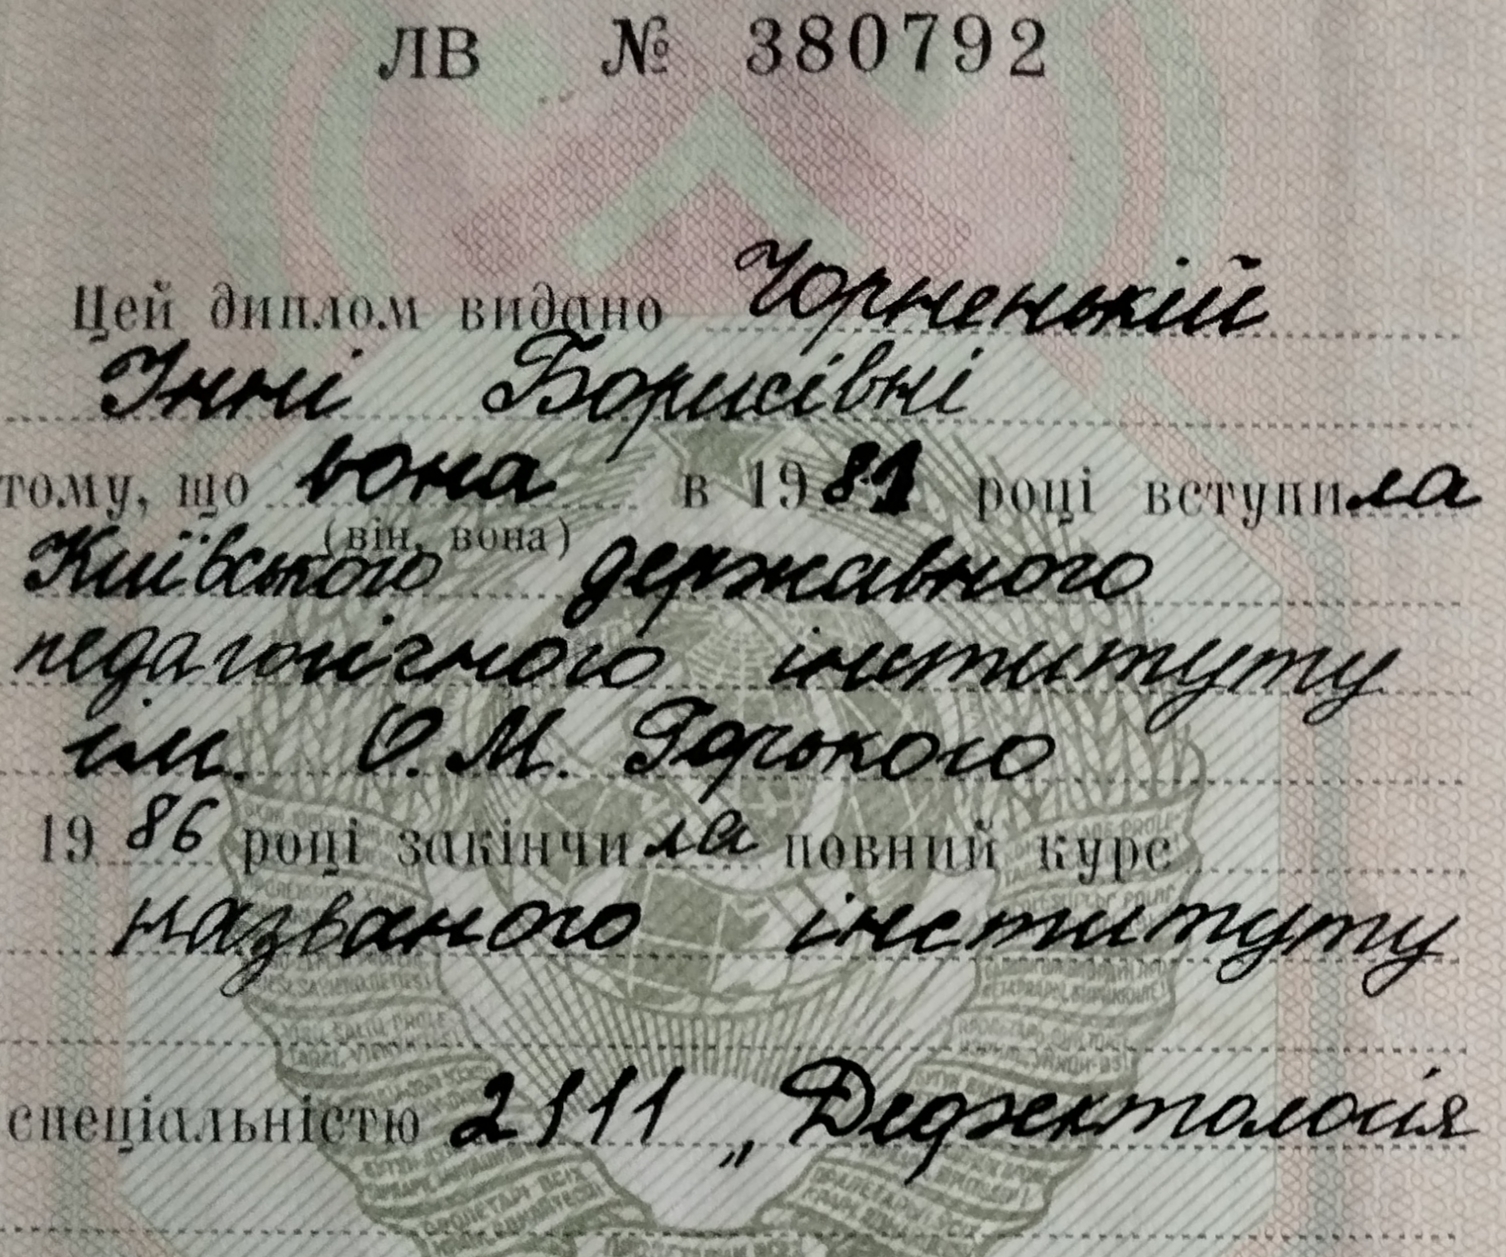 ЛВ № 380792
Цей диплом видано Чорненькій
Інні Борисівні
тому, що вона в 1981 році вступила
(він, вона)
Київського державного
педагогічного інституту
ім. О.М. Горького
1986 році закінчила повний курс
названого інституту
спеціальністю 2111 „Дефектологія